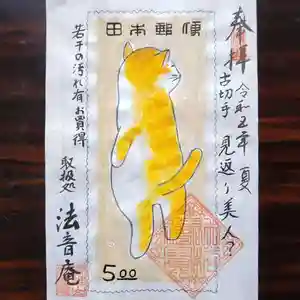 奉拝
令和五年 夏
古切手 見返り美人?
日本郵便
5.00
若干の汚れ有 お買得
取扱処
法音庵